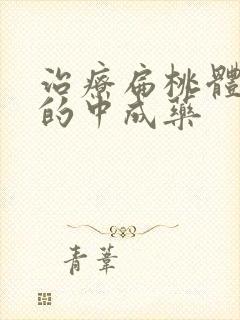 治療扁桃體
的中成藥
青葦